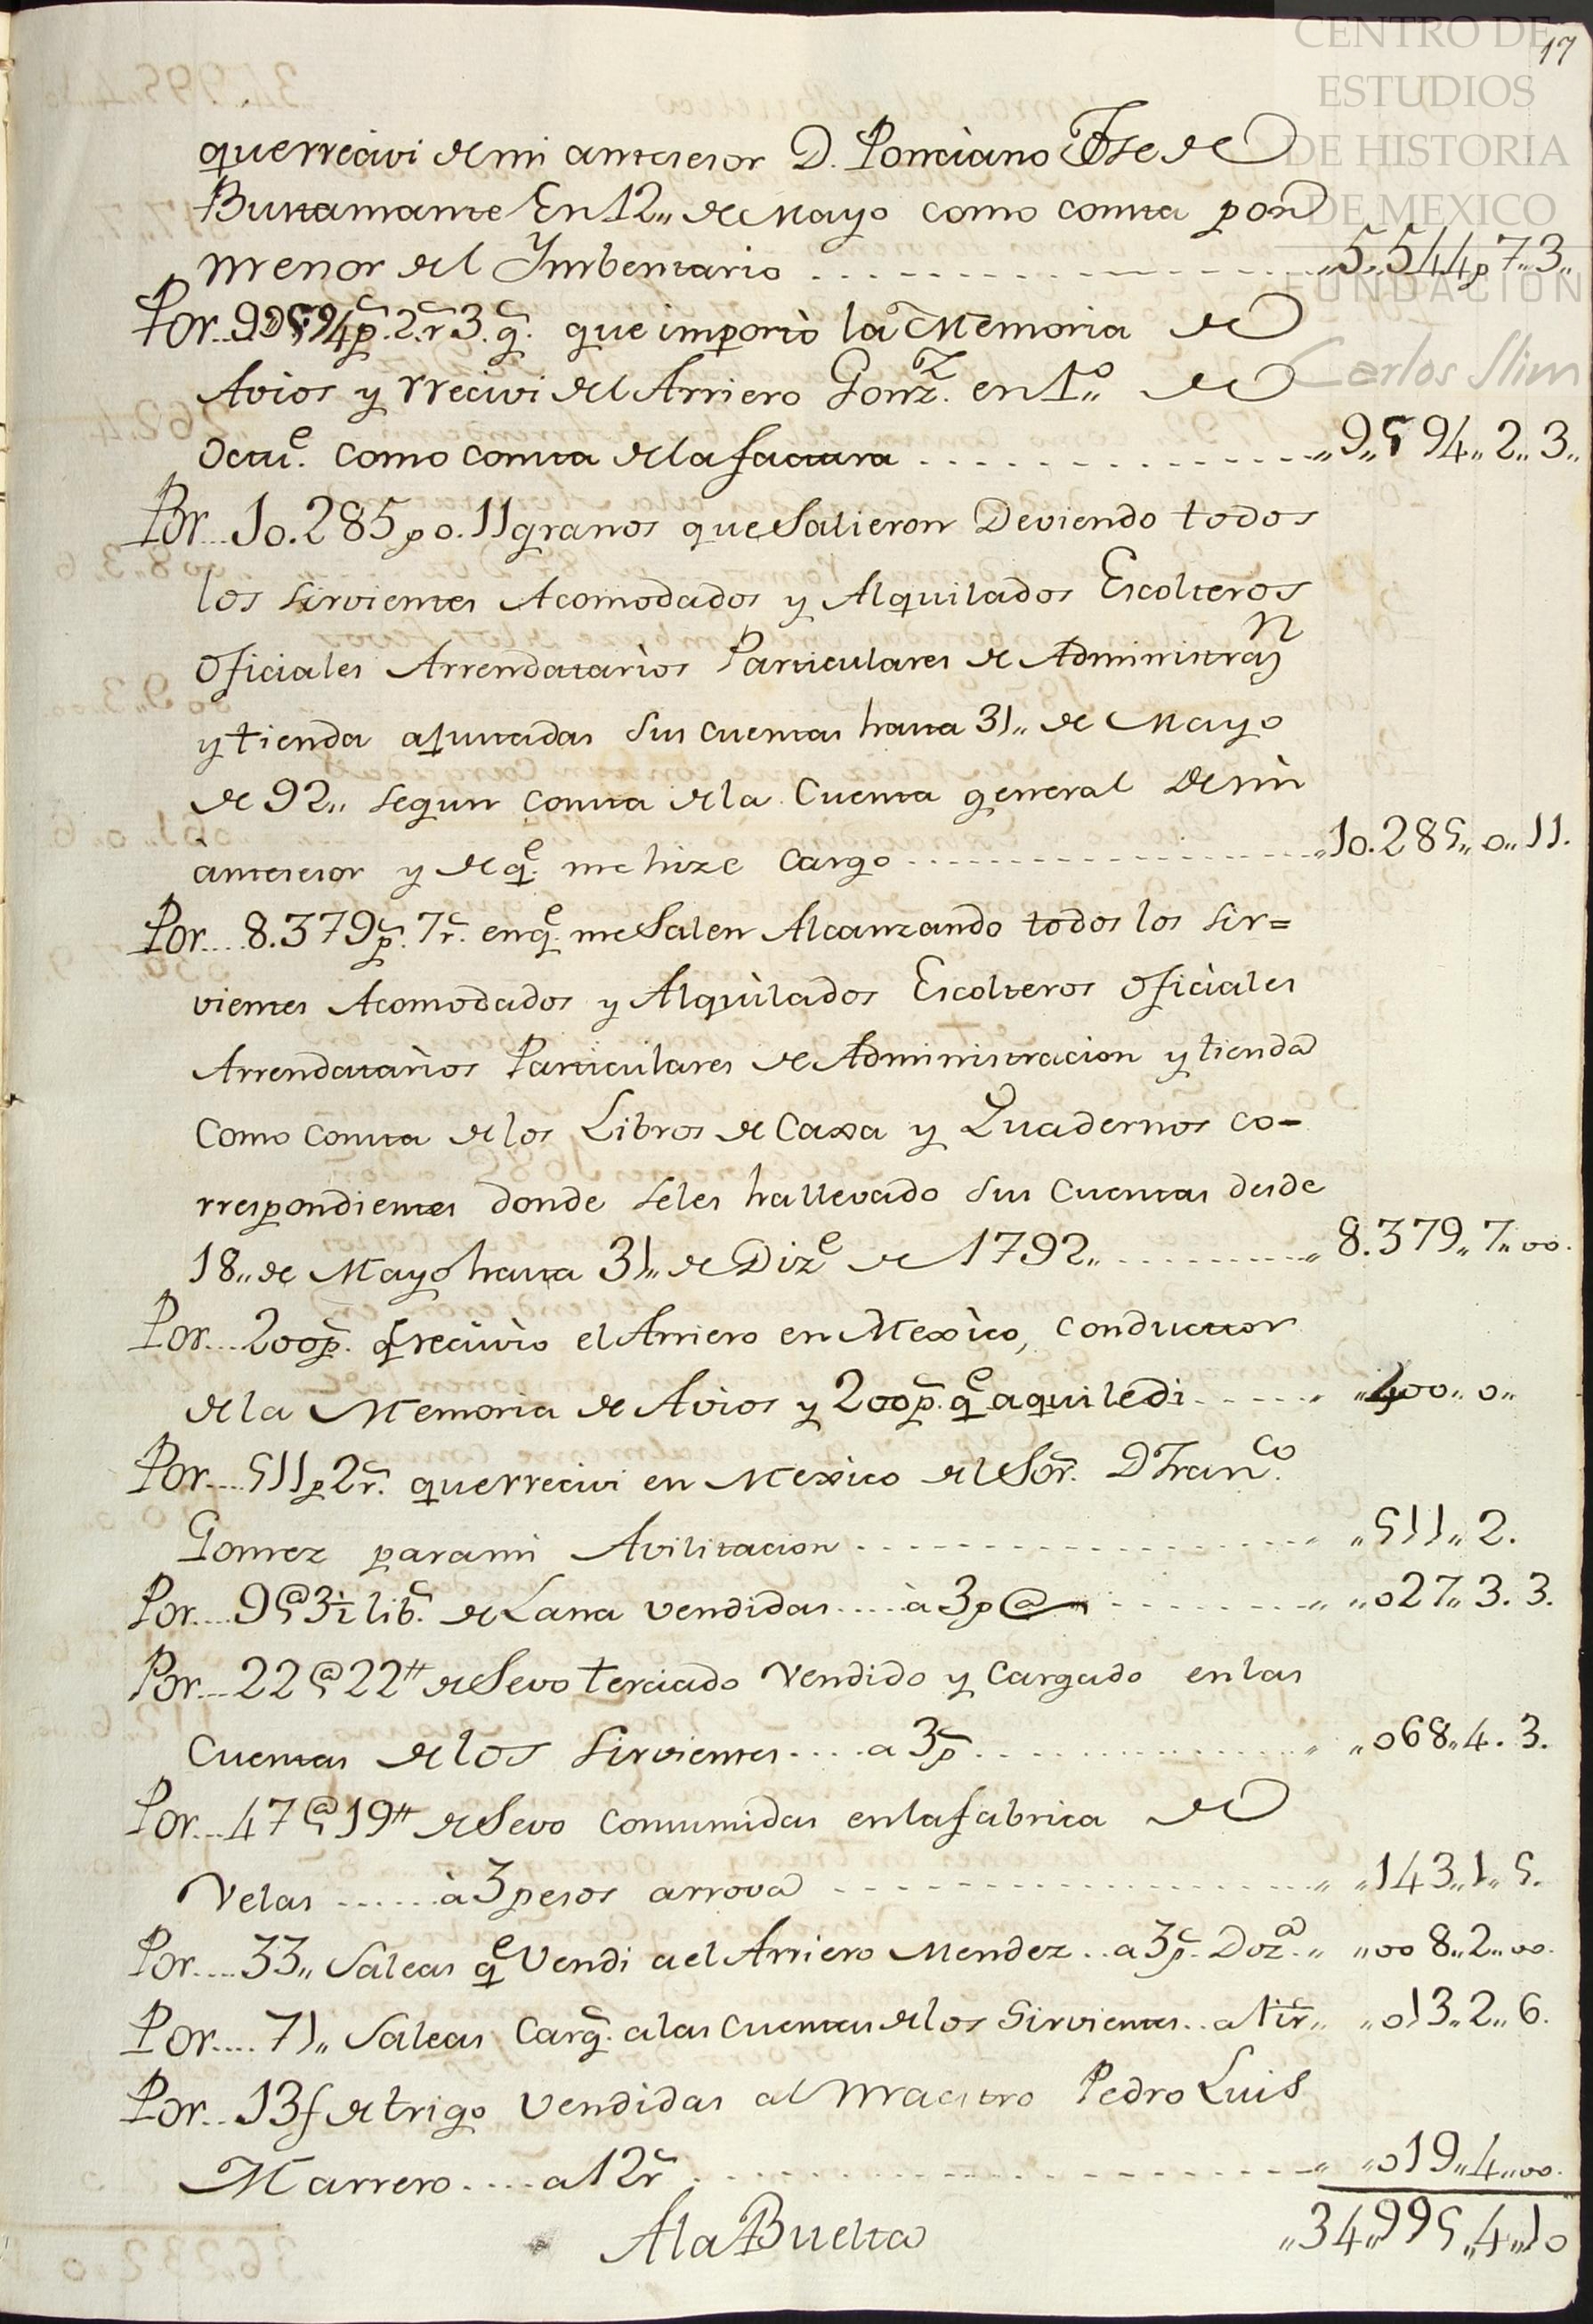 CENTRO DE
ESTUDIOS
DE HISTORIA
DE MEXICO
FUNDACION
Carlos Slim
17
querrecivi de mi antecesor D. Ponciano Jose de
Bustamante En 12,, de Mayo como consta por
menor del Ymbentario ,,5,,544p 7,,3,,
Por 9,,594p̃. 2.r̃ 3.g̃. que importò la Memoria de
Avios y rrecivi del Arriero Gonz.z en 1o,, de
Octue. como consta de la factura ,,9,,594,,2,,3,,
Por 10.285p o.11granos que Salieron Deviendo todos
los sirvientes Acomodados y Alquilados Escolteros
Oficiales Arrendatarìos Particulares de Administran
y tienda ajustadas sus cuentas hasta 31,, de Mayo
de 92,, segun consta de la Cuenta general De mi
antecesor y de qe. me hize Cargo ,,10.285,,0,,11.
Por 8.379p̃. 7r̃. en qe. me Salen Alcanzando todos los sir=
vientes Acomodados y Alquìlados Escolteros Oficìales
Arrendatarìos Particulares de Administracion y tienda
Como consta de los Libros de Caxa y Quadernos co-
rrespondientes donde seles hallevado sus Cuentas desde
18,, de Mayo hasta 31,, de Dize de 1792,, 8.379,,7,,00.
Por 200p̃. q̃ recivìo el Arriero en Mexìco, Conductor
de la Memoria de Avios y 200p̃. qe aqui le di ,,400,,0,,
Por 511p 2r̃. que rrecivi en Mexìco del Sor̃. D Franco.
Gomez para mi Avilitacion ,,511,,2.
Por 95@ 3½ lib̃. de Lana vendidas à 3p @ ,,027,,3.3.
Por 22@ 22# de Sevo terciado Vendido y Cargado en las
Cuentas de los Sirvientes a 3p̃ ,,068,,4.3.
Por 47@ 19# de Sevo Consumidas en la fabrica de
Velas à 3 pesos arrova ,,143,,1,,5.
Por 33,, Saleas qe Vendi a el Arriero Mendez a 3p̃. Doza. ,,008,,2,,00.
Por 71,, Saleas Carg̃. a las Cuentas de los Sirvientes a 1½r̃ ,,013,,2,,6.
Por 13f de trigo Vendidas al Maestro Pedro Luis
Marrero a 12r̃ ,,019,,4,,00.
A la Buelta ,,34,,995,,4,,10